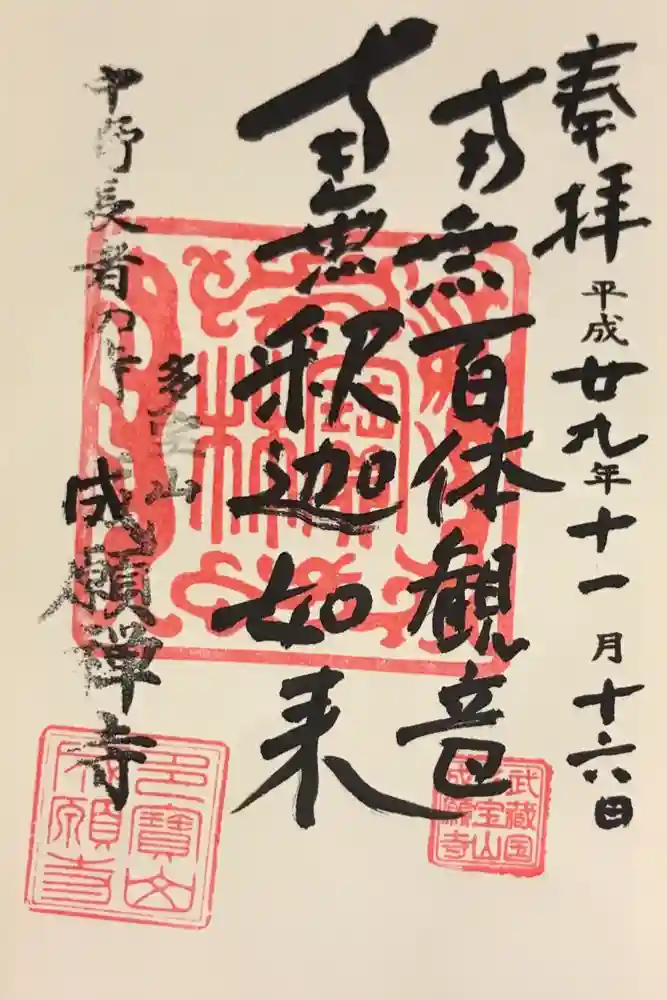 奉拝
平成廿九年十一月十六日
南無百体観音
南無釈迦如来
中野長者の寺
多宝山
成願禅寺
武蔵国
多宝山
成願寺
多寶山
成願寺